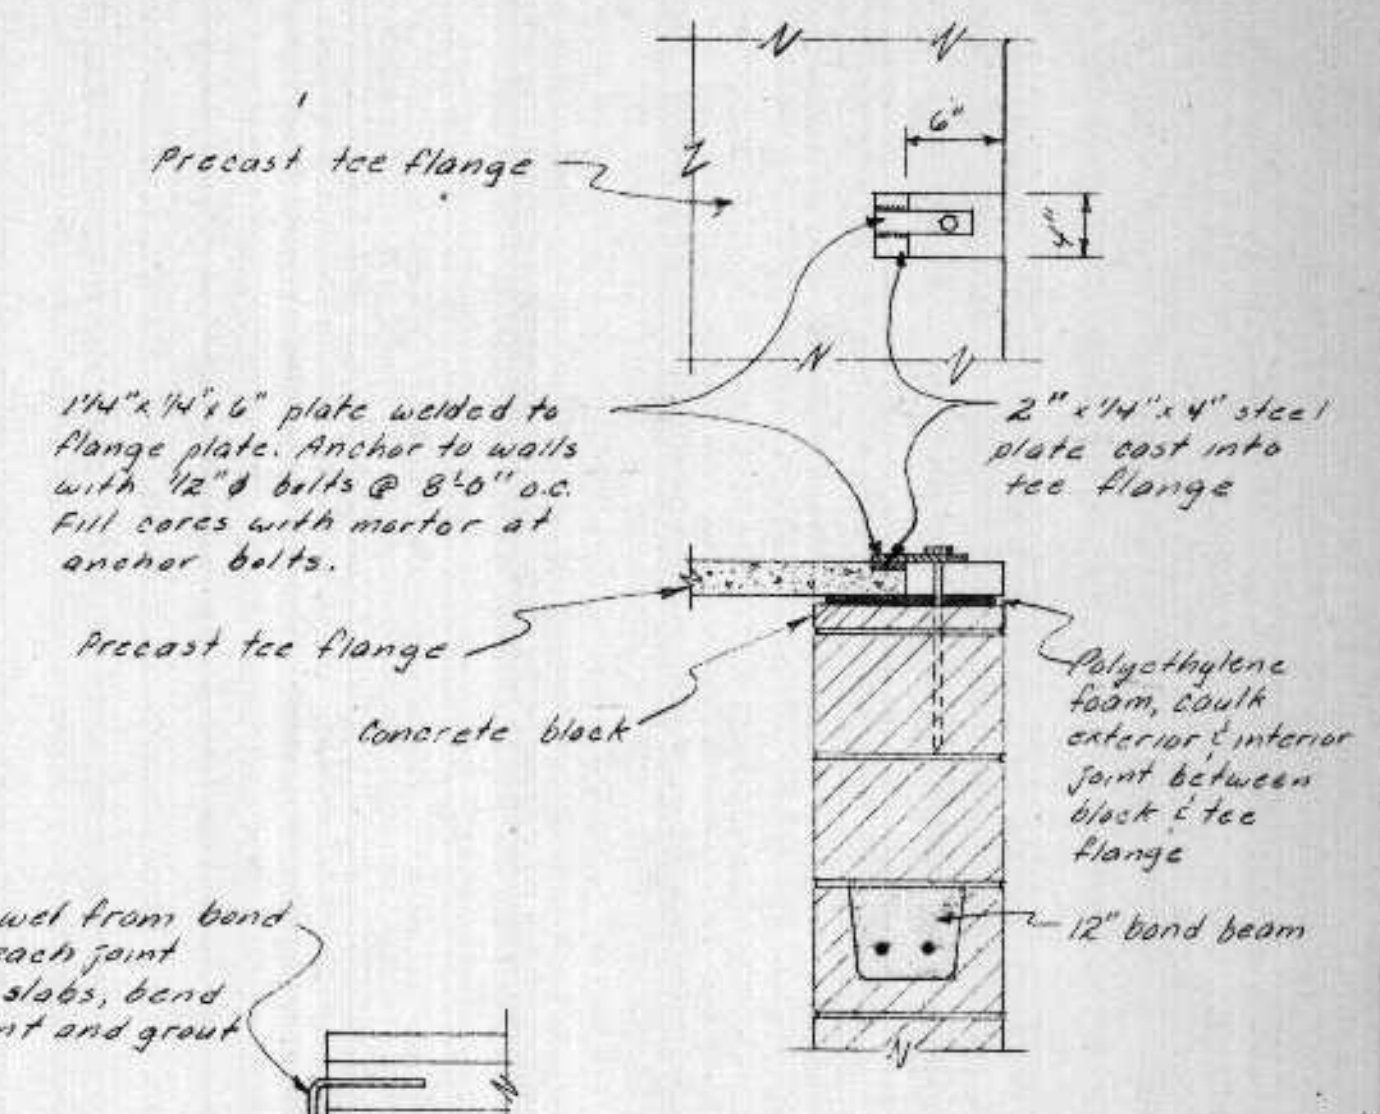 6"
Precast tee flange
4"
1 1/4" x 1/4" x 6" plate welded to
flange plate. Anchor to walls
with 1/2" ø bolts @ 8'-0" o.c.
Fill cores with mortar at
anchor bolts.
2" x 1/4" x 4" steel
plate cast into
tee flange
Precast tee flange
Concrete block
Polyethylene
foam, caulk
exterior & interior
joint between
block & tee
flange
12" bond beam
wel from bond
each joint
slabs, bend
nt and grout